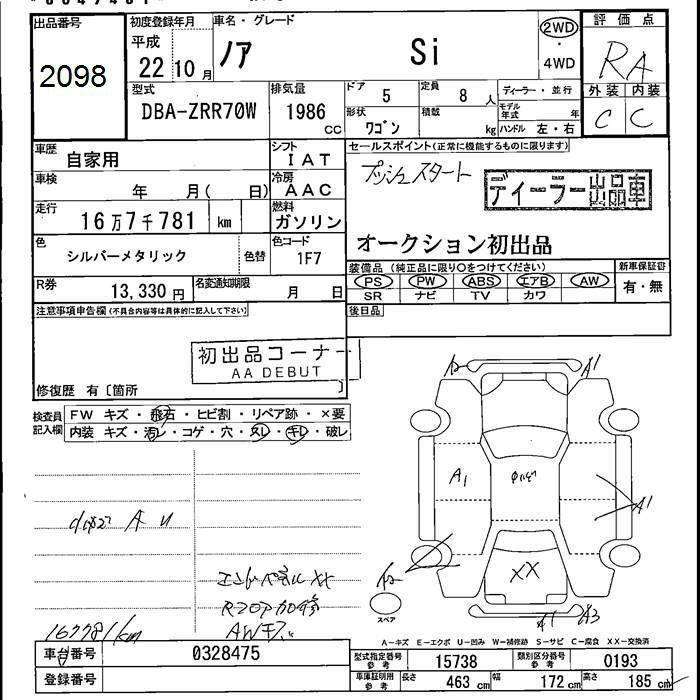 出品番号
2098
初度登録年月
平成
22 10 月
車名・グレード
ノア Si
2WD
・
4WD
評価点
RA
外装 内装
C C
型式
DBA-ZRR70W
排気量
1986 CC
ドア 5
定員 8 人
形状 ワゴン
積載 kg
ディーラー・並行
モデル年式 年
ハンドル 左・右
車歴 自家用
シフト IAT
セールスポイント(正常に機能するものに限ります)
プッシュスタート
ディーラー出品車
車検 年 月( 日)
冷房 AAC
走行 16万7千781 km
燃料 ガソリン
オークション初出品
色 シルバーメタリック
色替
色コード 1F7
装備品(純正品に限り○をつけてください)
PS PW ABS エアB AW
SR ナビ TV カワ
新車保証書
有・無
R券 13,330 円
名変通知期限 月 日
後日品
注意事項申告欄(不具合内容等は具体的に記入して下さい)
初出品コーナー
AA DEBUT
修復歴 有〔箇所 〕
検査員記入欄
FW キズ・飛石・ヒビ割・リペア跡・×要
内装 キズ・汚レ・コゲ・穴・スレ・キレ・破レ
A2 A1
A1
A1
A U
A2
XX
スペア
A1 A3
エンドパネルXX
Rフロア加修
AWキズ
167781km
A-キズ E-エクボ U-凹み W-補修跡 S-サビ C-腐食 XX-交換済
車台番号 0328475
登録番号
型式指定番号参考 15738
類別区分番号参考 0193
車庫証明用参考 長さ 463 cm 幅 172 cm 高さ 185 cm